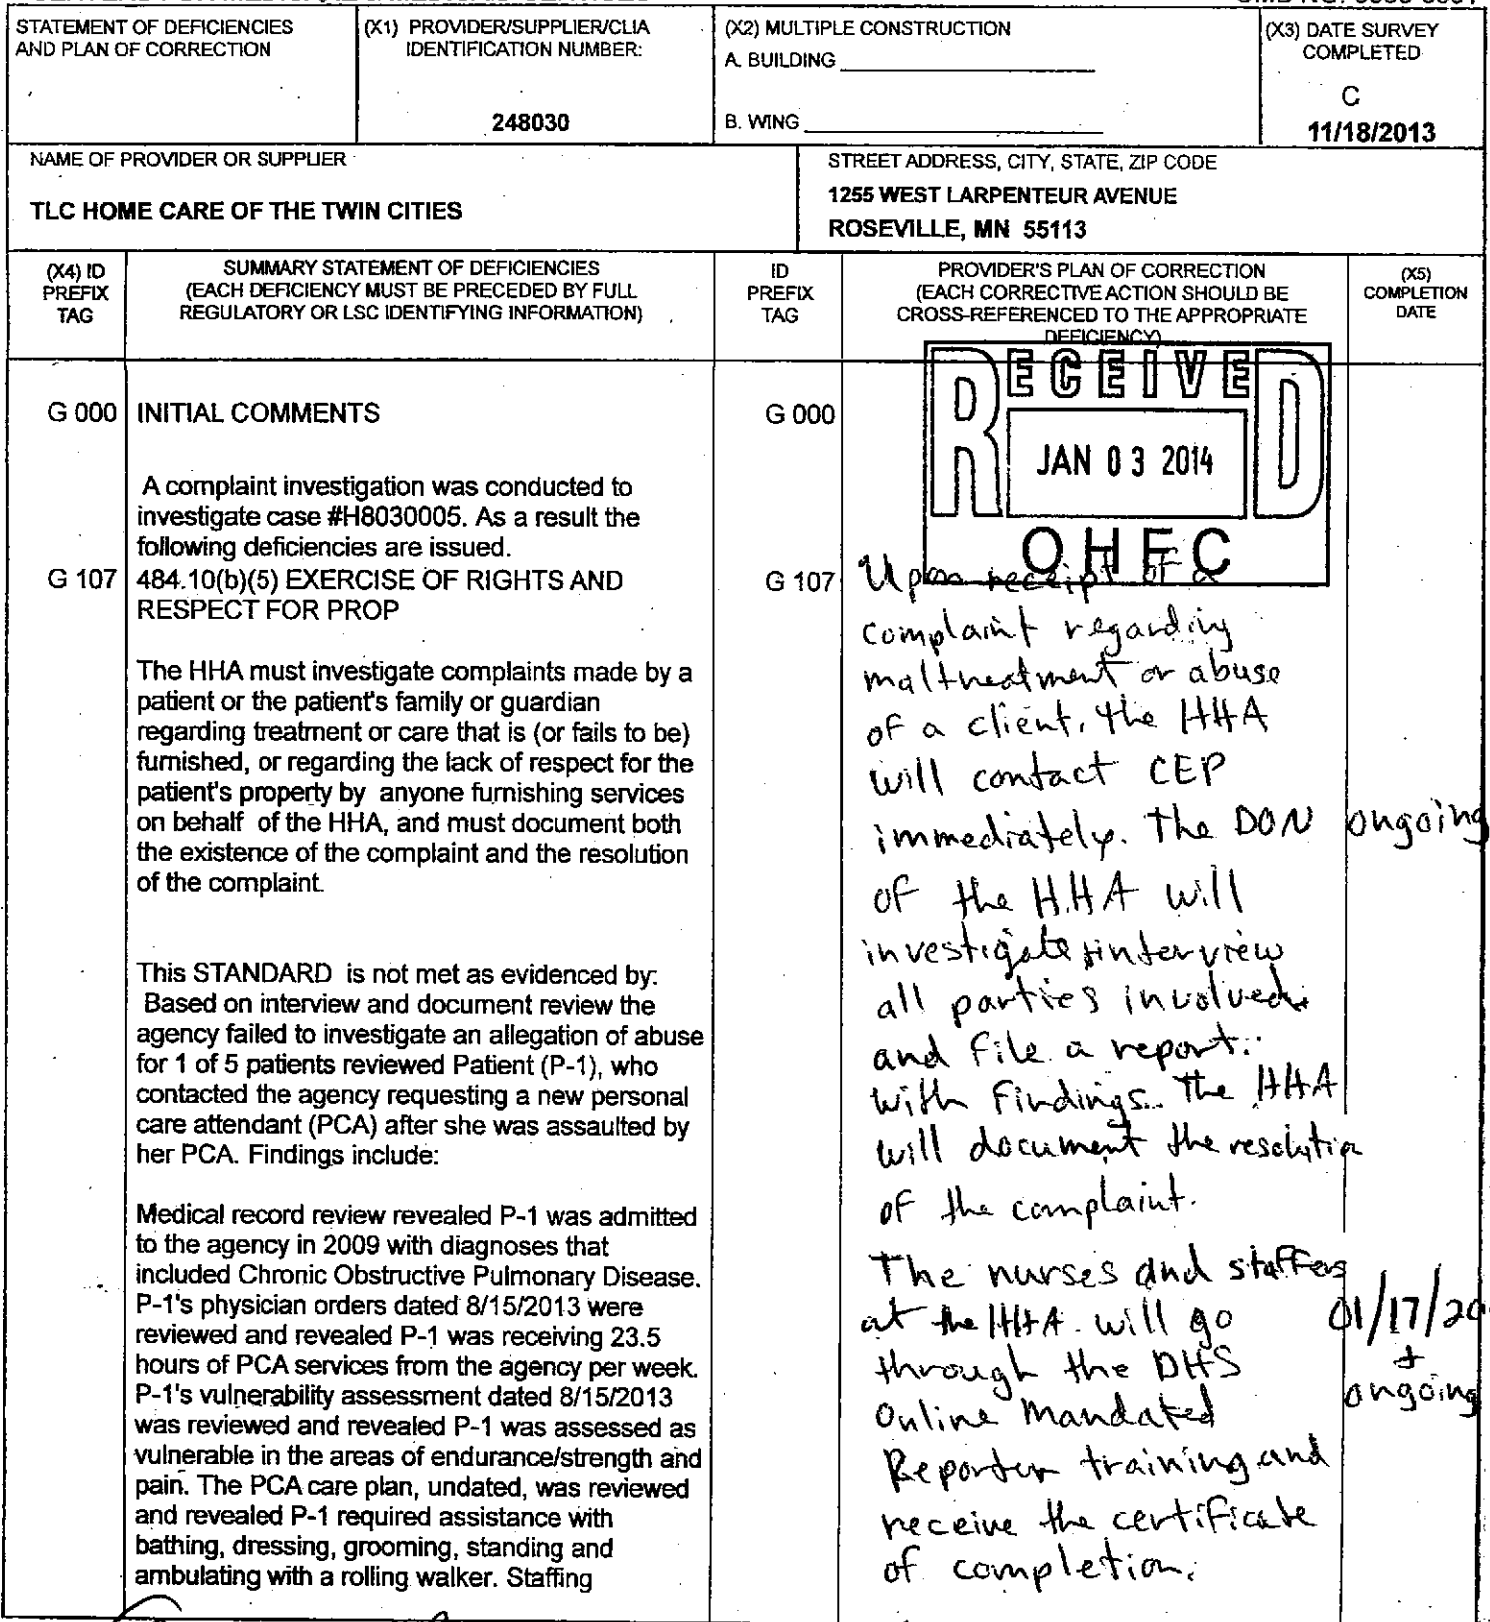 STATEMENT OF DEFICIENCIES
AND PLAN OF CORRECTION
(X1) PROVIDER/SUPPLIER/CLIA
IDENTIFICATION NUMBER:
248030
(X2) MULTIPLE CONSTRUCTION
A. BUILDING
B. WING
(X3) DATE SURVEY
COMPLETED
C
11/18/2013
NAME OF PROVIDER OR SUPPLIER
TLC HOME CARE OF THE TWIN CITIES
STREET ADDRESS, CITY, STATE, ZIP CODE
1255 WEST LARPENTEUR AVENUE
ROSEVILLE, MN 55113
(X4) ID
PREFIX
TAG
SUMMARY STATEMENT OF DEFICIENCIES
(EACH DEFICIENCY MUST BE PRECEDED BY FULL
REGULATORY OR LSC IDENTIFYING INFORMATION)
ID
PREFIX
TAG
PROVIDER'S PLAN OF CORRECTION
(EACH CORRECTIVE ACTION SHOULD BE
CROSS-REFERENCED TO THE APPROPRIATE
DEFICIENCY)
(X5)
COMPLETION
DATE
G 000
INITIAL COMMENTS
A complaint investigation was conducted to
investigate case #H8030005. As a result the
following deficiencies are issued.
G 107
484.10(b)(5) EXERCISE OF RIGHTS AND
RESPECT FOR PROP
The HHA must investigate complaints made by a
patient or the patient's family or guardian
regarding treatment or care that is (or fails to be)
furnished, or regarding the lack of respect for the
patient's property by anyone furnishing services
on behalf of the HHA, and must document both
the existence of the complaint and the resolution
of the complaint.
This STANDARD is not met as evidenced by:
Based on interview and document review the
agency failed to investigate an allegation of abuse
for 1 of 5 patients reviewed Patient (P-1), who
contacted the agency requesting a new personal
care attendant (PCA) after she was assaulted by
her PCA. Findings include:
Medical record review revealed P-1 was admitted
to the agency in 2009 with diagnoses that
included Chronic Obstructive Pulmonary Disease.
P-1's physician orders dated 8/15/2013 were
reviewed and revealed P-1 was receiving 23.5
hours of PCA services from the agency per week.
P-1's vulnerability assessment dated 8/15/2013
was reviewed and revealed P-1 was assessed as
vulnerable in the areas of endurance/strength and
pain. The PCA care plan, undated, was reviewed
and revealed P-1 required assistance with
bathing, dressing, grooming, standing and
ambulating with a rolling walker. Staffing
G 000
G 107
RECEIVED
JAN 03 2014
OHFC
Upon receipt of a
complaint regarding
maltreatment or abuse
of a client, the HHA
will contact CEP
immediately. The DON
of the HHA will
investigate + interview
all parties involved
and file a report
with findings. The HHA
will document the resolution
of the complaint.
The nurses and staffers
at the HHA will go
through the DHS
Online Mandated
Reporter training and
receive the certificate
of completion.
ongoing
01/17/20
+
ongoing